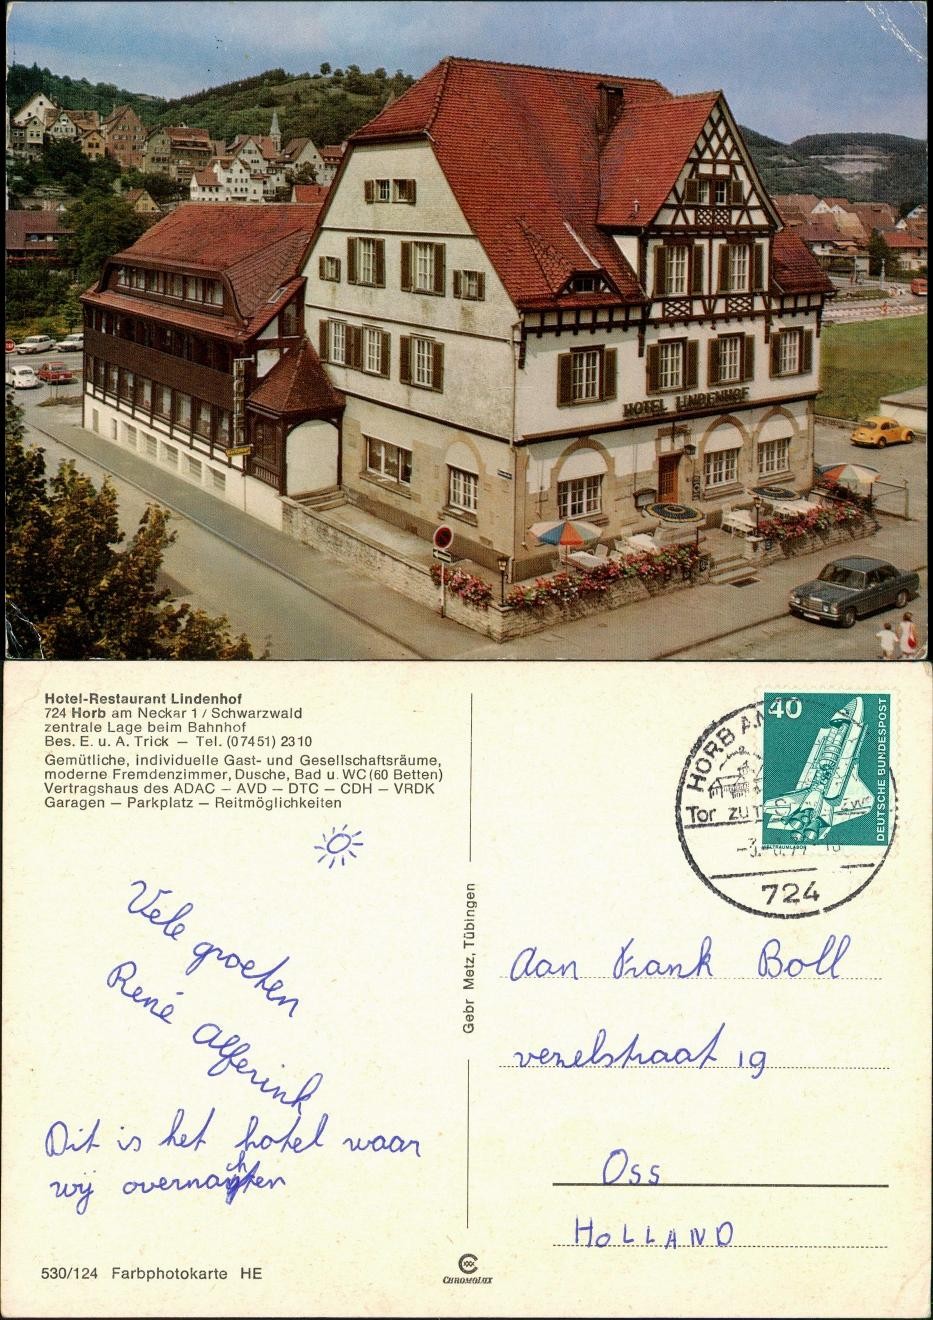 HOTEL LINDENHOF
Hotel-Restaurant Lindenhof
724 Horb am Neckar 1 / Schwarzwald
zentrale Lage beim Bahnhof
Bes. E. u. A. Trick — Tel. (07451) 2310
Gemütliche, individuelle Gast- und Gesellschaftsräume,
moderne Fremdenzimmer, Dusche, Bad u. WC (60 Betten)
Vertragshaus des ADAC — AVD — DTC — CDH — VRDK
Garagen — Parkplatz — Reitmöglichkeiten
Vele groeten
René Alferink
Dit is het hotel waar
wij overnachten
530/124 Farbphotokarte HE
Gebr Metz, Tübingen
CHROMOLUX
40
DEUTSCHE BUNDESPOST
WELTRAUMLABOR
HORB AM
Tor zu
724
Aan Frank Boll
venelstraat 19
Oss
HOLLAND